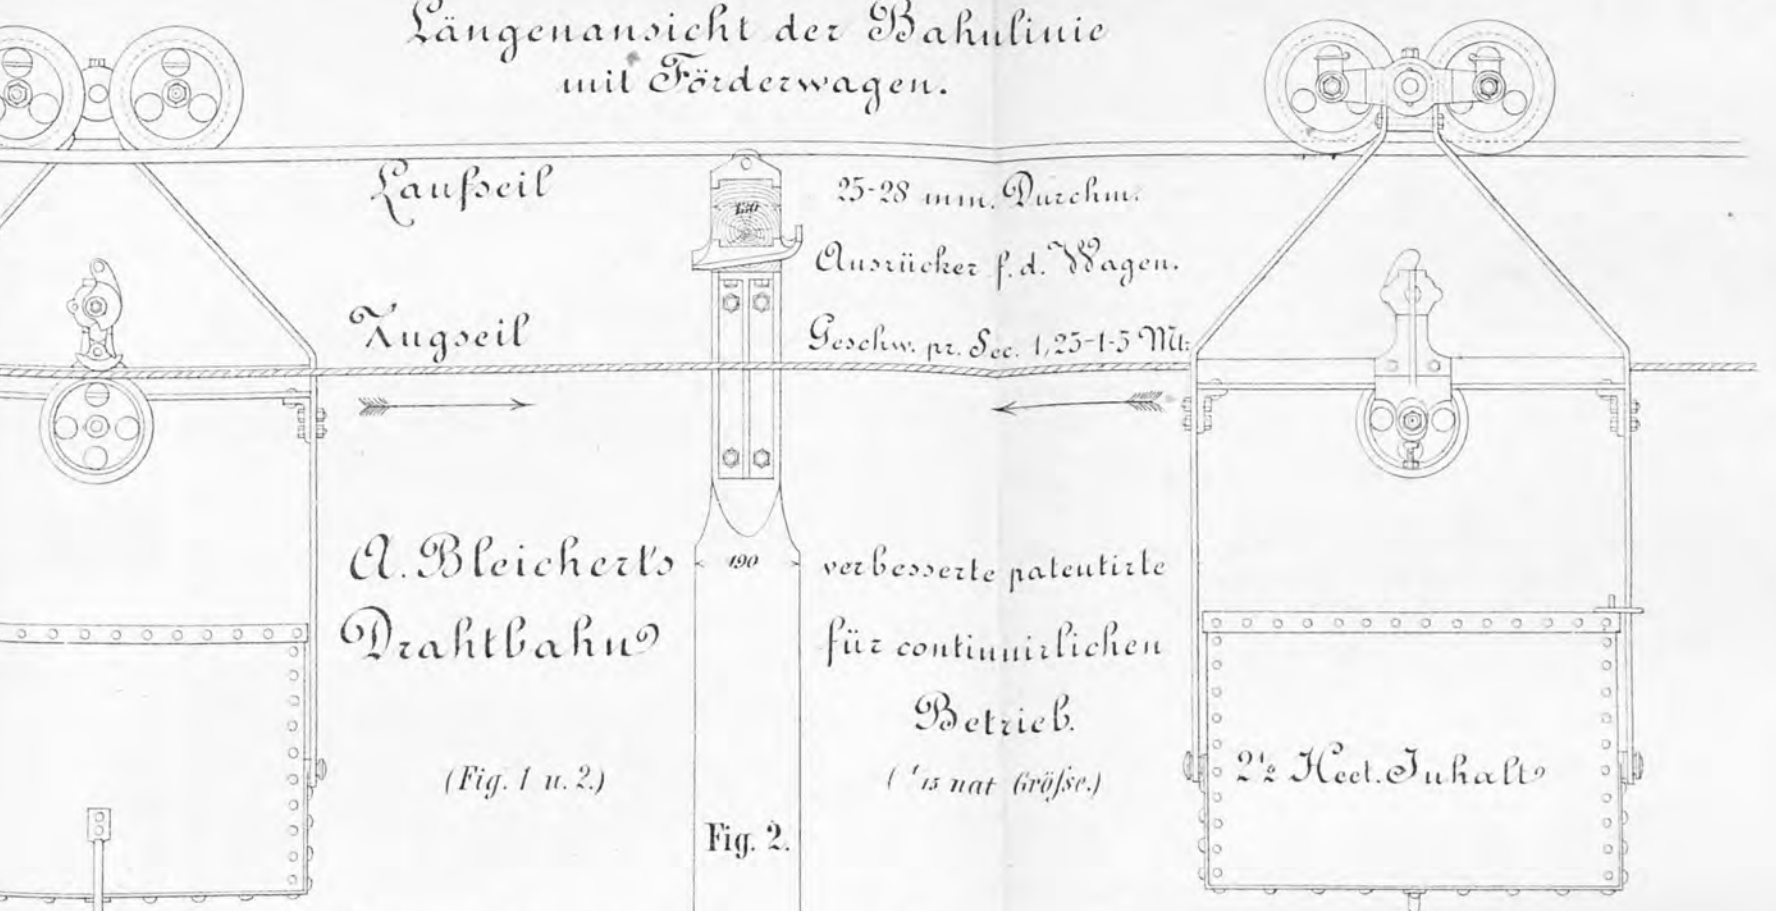 Längenansicht der Bahnlinie
mit Förderwagen.
Laufseil
25-28 mm. Durchm.
130
Ausrücker f. d. Wagen.
Zugseil
Geschw. pr. Sec. 1,25-1·5 Mt:
A. Bleichert's
190
verbesserte patentirte
Drahtbahn
für continuirlichen
Betrieb.
(Fig. 1 u. 2.)
(1/15 nat Größse.)
2½ Hect. Inhalt
Fig. 2.